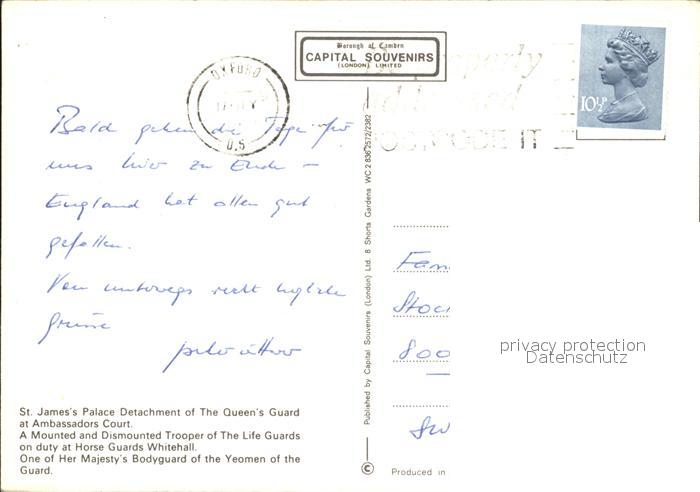 Borough of Camden
CAPITAL SOUVENIRS
(LONDON) LIMITED
OXFORD
properly
addressed
POSTCODE IT
10½P
Bald gehen die Tage für
uns hier zu Ende –
England hat allen gut
gefallen.
Von unterwegs recht herzliche
Grüsse
Published by Capital Souvenirs (London) Ltd. 8 Shorts Gardens WC2 836 2572/2382
Fam
Stoc
800
privacy protection
Datenschutz
St. James's Palace Detachment of The Queen's Guard
at Ambassadors Court.
A Mounted and Dismounted Trooper of The Life Guards
on duty at Horse Guards Whitehall.
One of Her Majesty's Bodyguard of the Yeomen of the
Guard.
©
Produced in